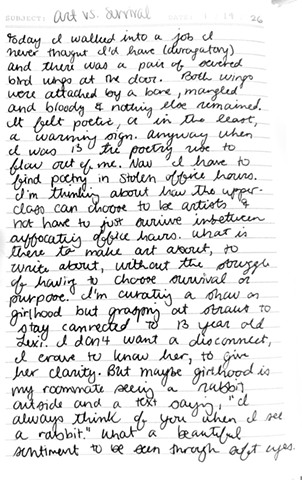 SUBJECT: art vs. survival 1 19 26
today I walked into a job I
never thought I'd have (durogatory)
and there was a pair of severed
bird wings at the door. Both wings
were attached by a bone, mangled
and bloody & nothing else remained.
It felt poetic, or in the least,
a warning sign. Anyway when
I was 13 the poetry use to
flow out of me. Now I have to
find poetry in stolen office hours.
I'm thinking about how the upper-
class can choose to be artists &
not have to just survive inbetween
suffocating office hours. What is
there to make art about, to
write about, without the struggle
of having to choose survival or
purpose. I'm curating a show on
girlhood but grasping at straws to
stay connected to 13 year old
Lexi. I don't want a disconnect,
I crave to know her, to give
her clarity. But maybe girlhood is
my roommate seeing a rabbit
outside and a text saying, "I
always think of you when I see
a rabbit." What a beautiful
sentiment to be seen through soft eyes.